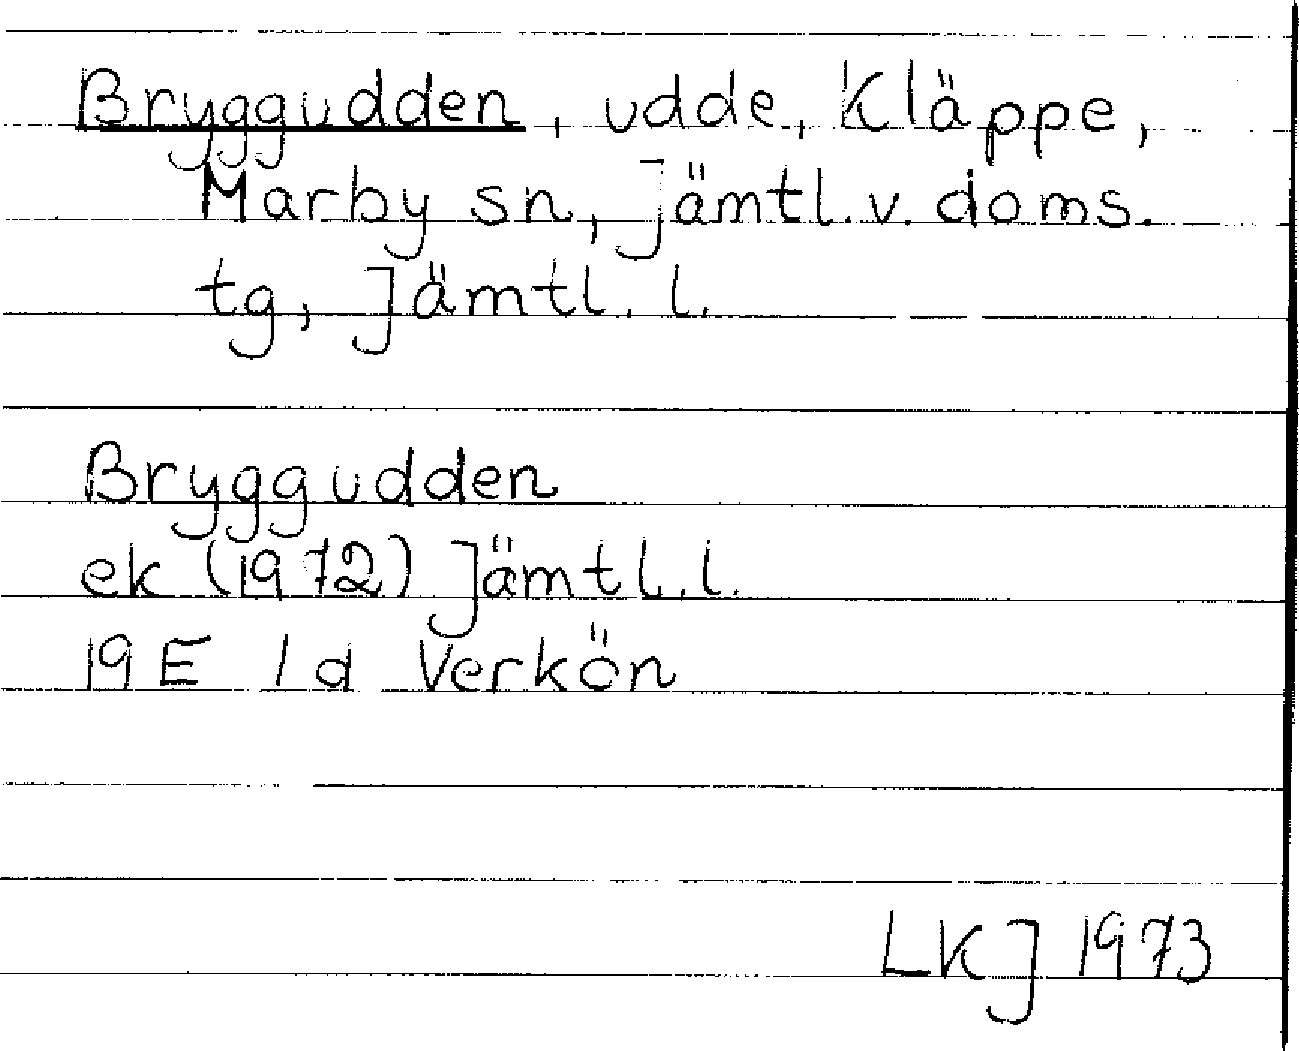 Bryggudden, udde, Kläppe,
Marby sn, Jämtl. v. doms.
tg, Jämtl. l.
Bryggudden
ek (1972) Jämtl. l.
19E 1d Verkön
LKJ 1973